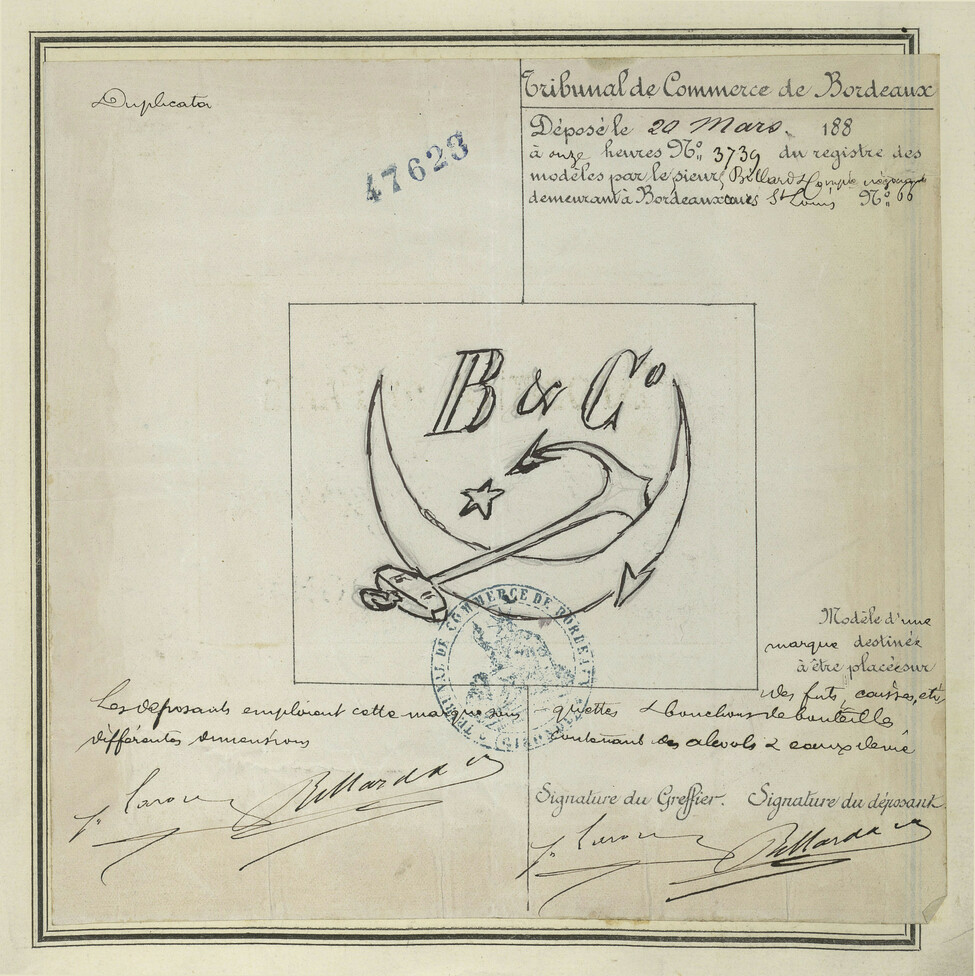 Duplicata
47623
Tribunal de Commerce de Bordeaux
Déposé le 20 Mars 188
à onze heures N° 3739 du registre des
modèles par le sieurs Billard & Compie négociants
demeurant à Bordeaux cours St Louis N° 66
B & Co
TRIBUNAL DE COMMERCE DE BORDEAUX
Modèle d'une
marque destinée
à être placée sur
des futs, caisses, éti-
quettes & bouchons de bouteilles
contenant des alcools & eaux de vie
Les déposants emploient cette marque sous
différentes dimensions
Signature du Greffier. Signature du déposant.
Billard & Co
Billard & Co